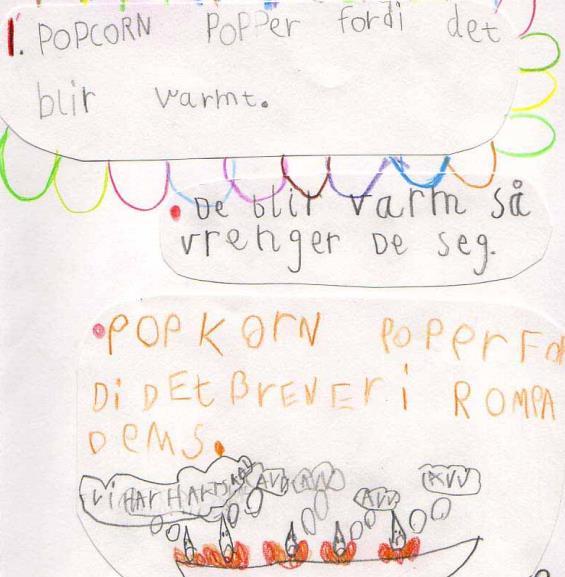 1. POPCORN POPPer fordi det
blir varmt.
De blir varm så
vrenger De seg.
POPKORN POPerFOr
Di DEt BrEVErI ROMPA
DeMS.
Vi HAr
AVV
AVV
AVV